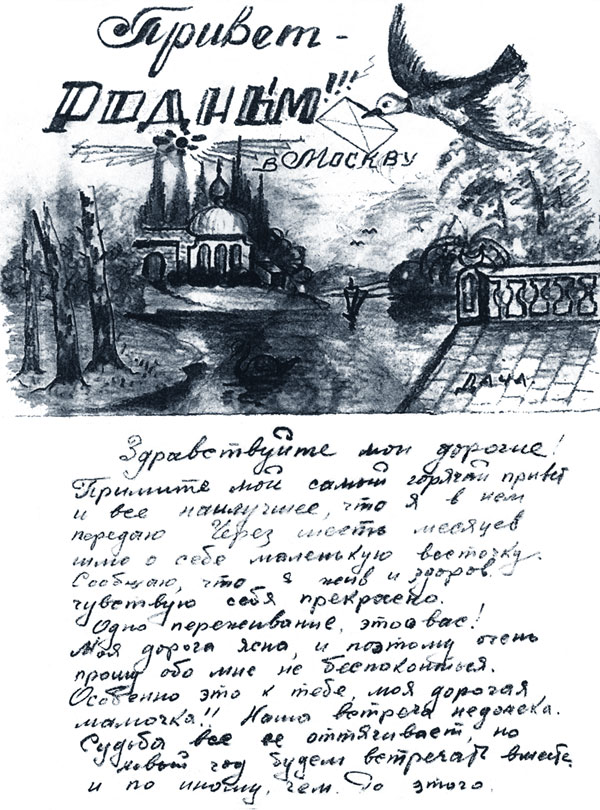 Привет -
РОДНЫМ!!!
в МОСКВУ
ДАЧА.
Здравствуйте мои дорогие!
Примите мой самый горячий привет
и все наилучшее, что я в нем
передаю Через шесть месяцев
шлю о себе маленькую весточку.
Сообщаю, что я жив и здоров.
чувствую себя прекрасно.
Одно переживание, это о вас!
Моя дорога ясна, и поэтому очень
прошу обо мне не беспокоиться.
Особенно это к тебе, моя дорогая,
мамочка!! Наша встреча недалека.
Судьба все ее оттягивает, но
новый год будем встречать вместе
и по иному, чем до этого.